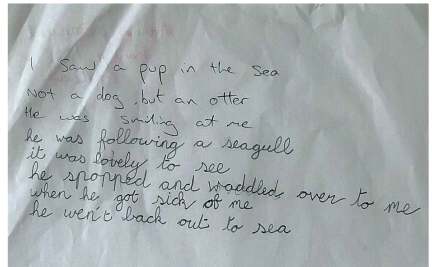 I Saw a pup in the Sea
Not a dog, but an otter
He was smiling at me
he was following a seagull
it was lovely to see
he spopped and waddled over to me
when he got sick of me
he wen't back out to sea